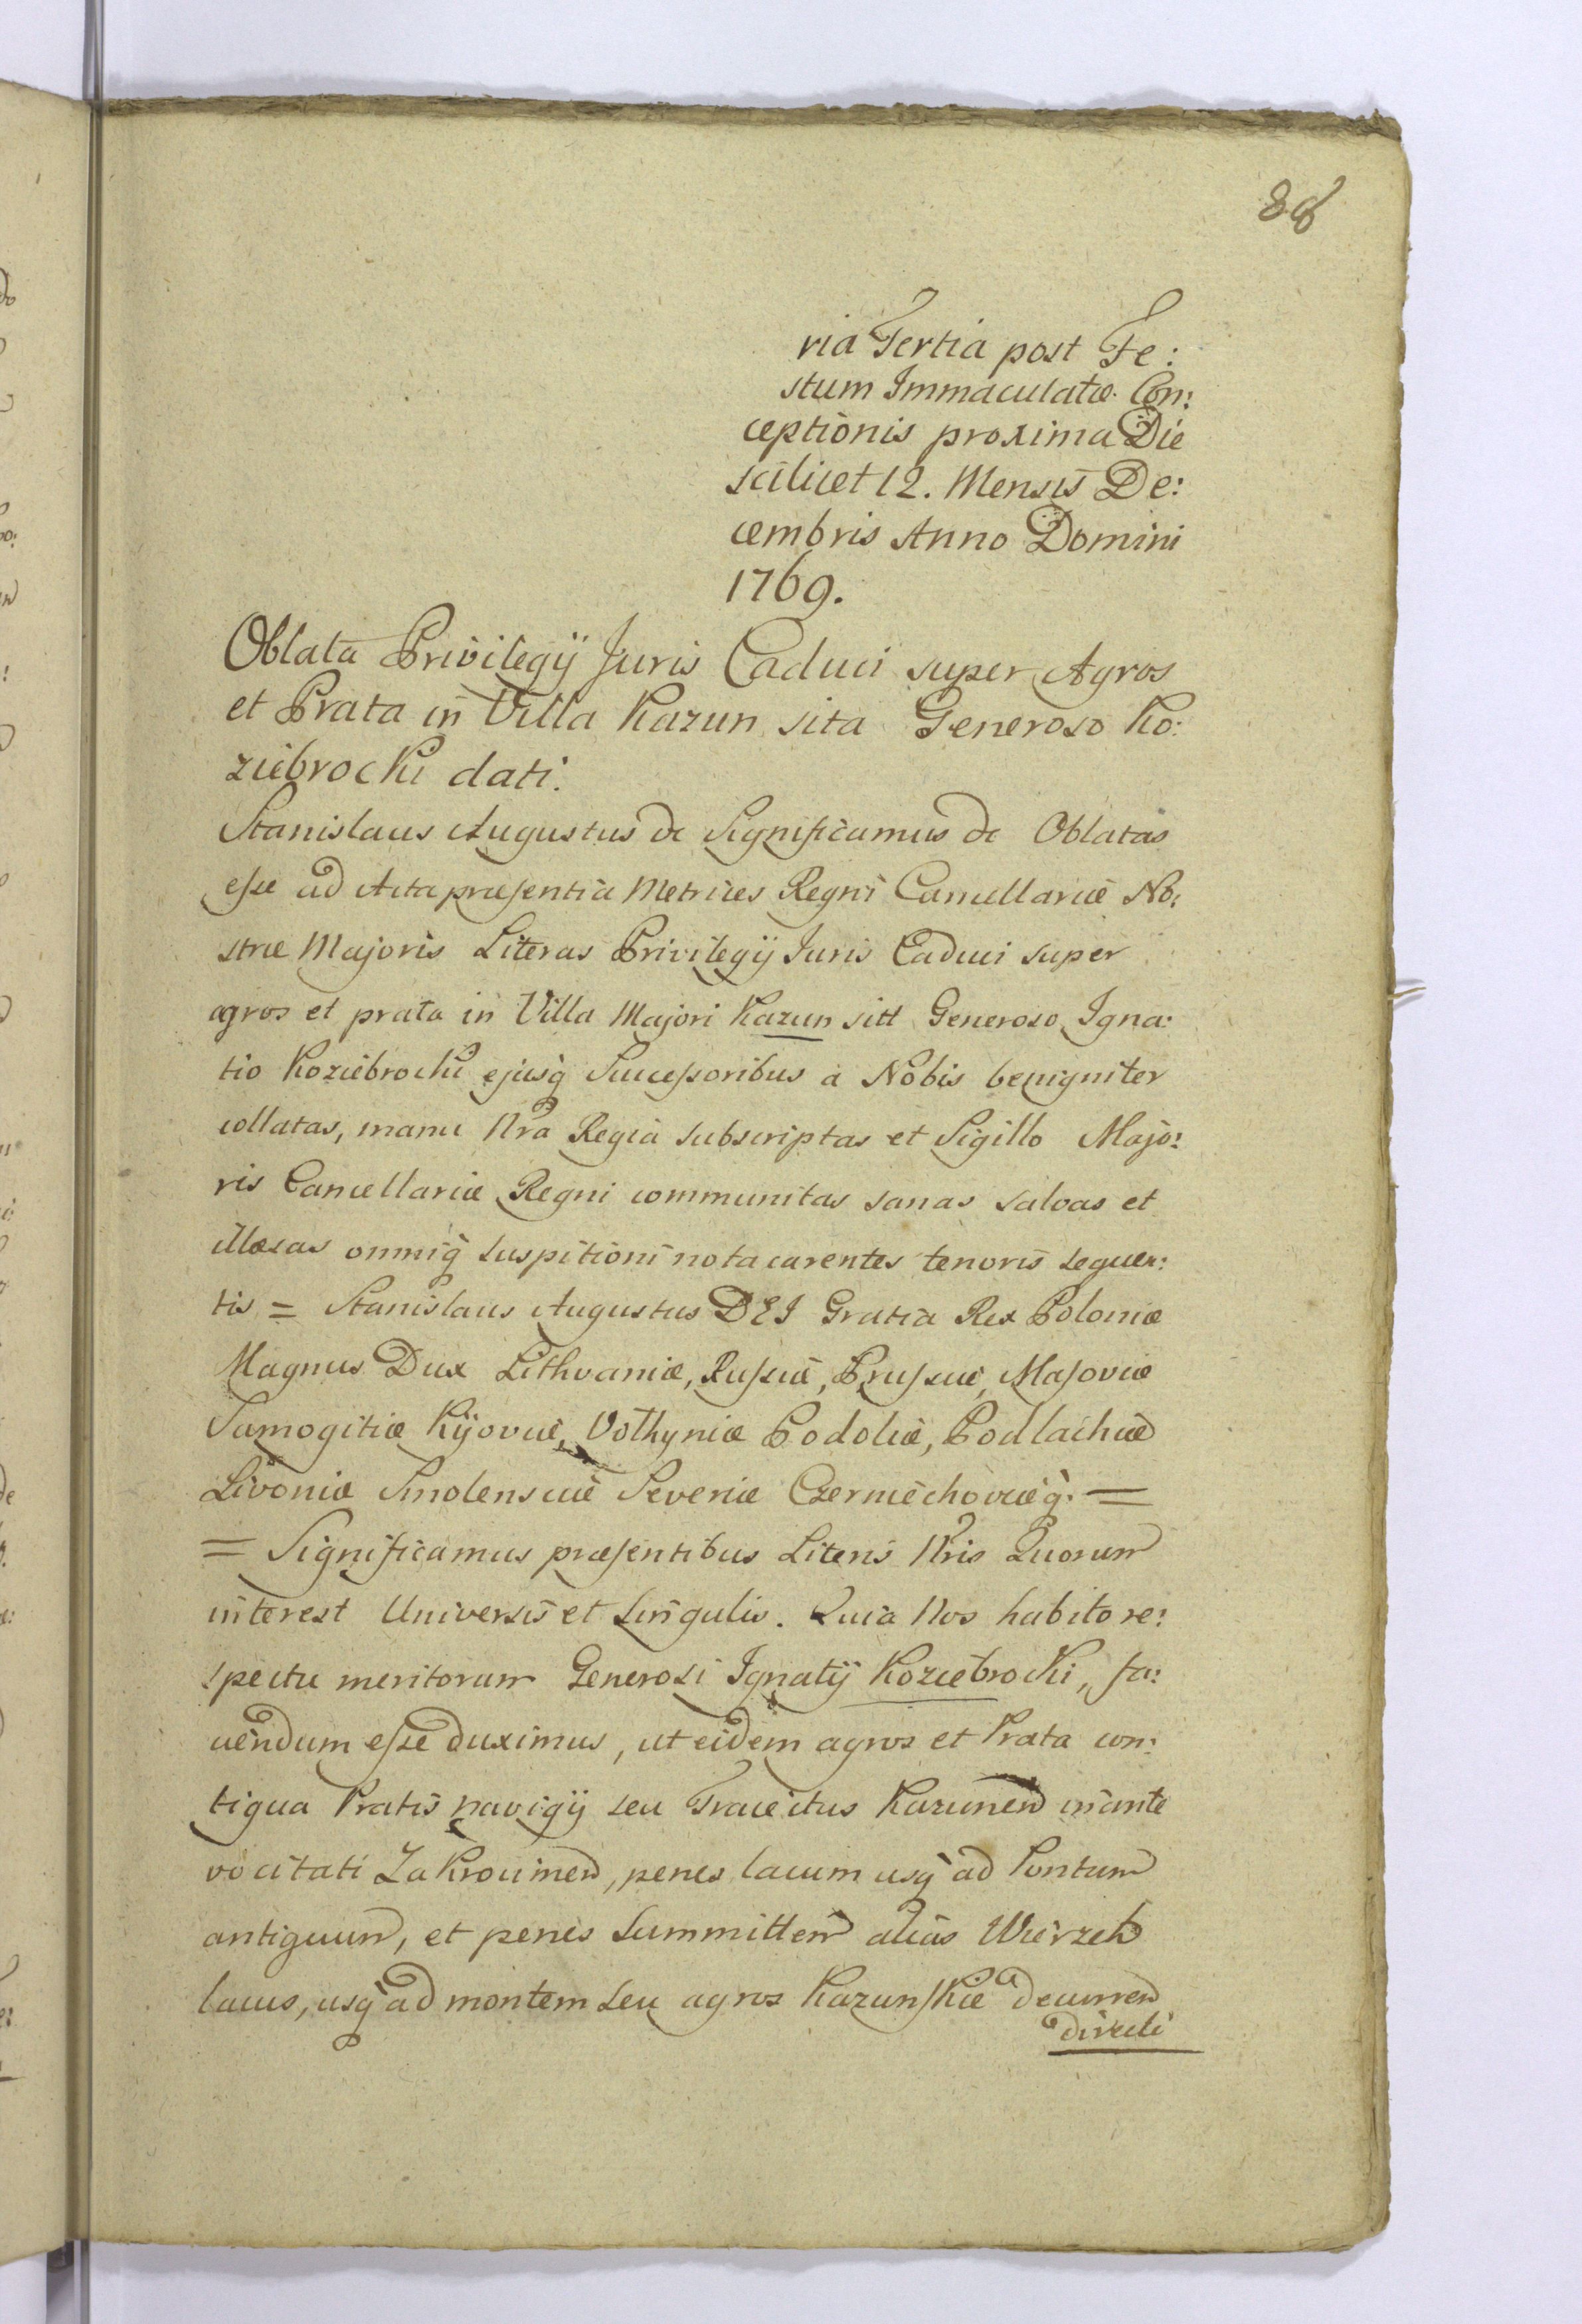 88
ria Tertia post Fe:
stum Immaculatæ Con:
ceptionis proxima Die
scilicet 12. Mensis De:
cembris Anno Domini
1769.
Oblata Privilegij Juris Caduci super Agros
et Prata in Villa Kazun sita Generoso Ko:
ziebrocki dati.
Stanislaus Augustus &c Significamus &c Oblatas
eſse ad Acta præsentia Metrices Regni Cancellariæ No:
stræ Majoris Literas Privilegij Juris Caduci super
agros et prata in Villa Majori Kazun sitt Generoso Igna:
tio Koziebrocki ejusq̀ Succeſsoribus a Nobis benigniter
collatas, manu Nra Regia subscriptas et Sigillo Majo:
ris Cancellariæ Regni communitas sanas salvas et
illæsas omniq̀ suspitioni nota carentes tenoris sequen:
tis = Stanislaus Augustus DEI Gratia Rex Poloniæ
Magnus Dux Lithvaniæ, Ruſsiæ, Pruſsiæ, Masoviæ
Samogitiæ Kijoviæ, Volhyniæ Podoliæ, Podlachiæ
Livoniæ Smolensciæ Severiæ Czerniechoviæq̀. =
= Significamus præsentibus Literis Nris Quorum
interest Universis et Singulis. Quia Nos habito re:
spectu meritorum Generosi Ignatij Koziebrocki, fa:
vendum eſse duximus, ut eidem agros et Prata con:
tigua Pratis navigij seu Traiectus Kazunen inante
vocitati Zakrocimen, penes lacum usq̀ ad Pontum
antiquum, et penes Summitten alias Wierzch
lacus, usq̀ ad montem seu agros Kazunskie decurren
directe